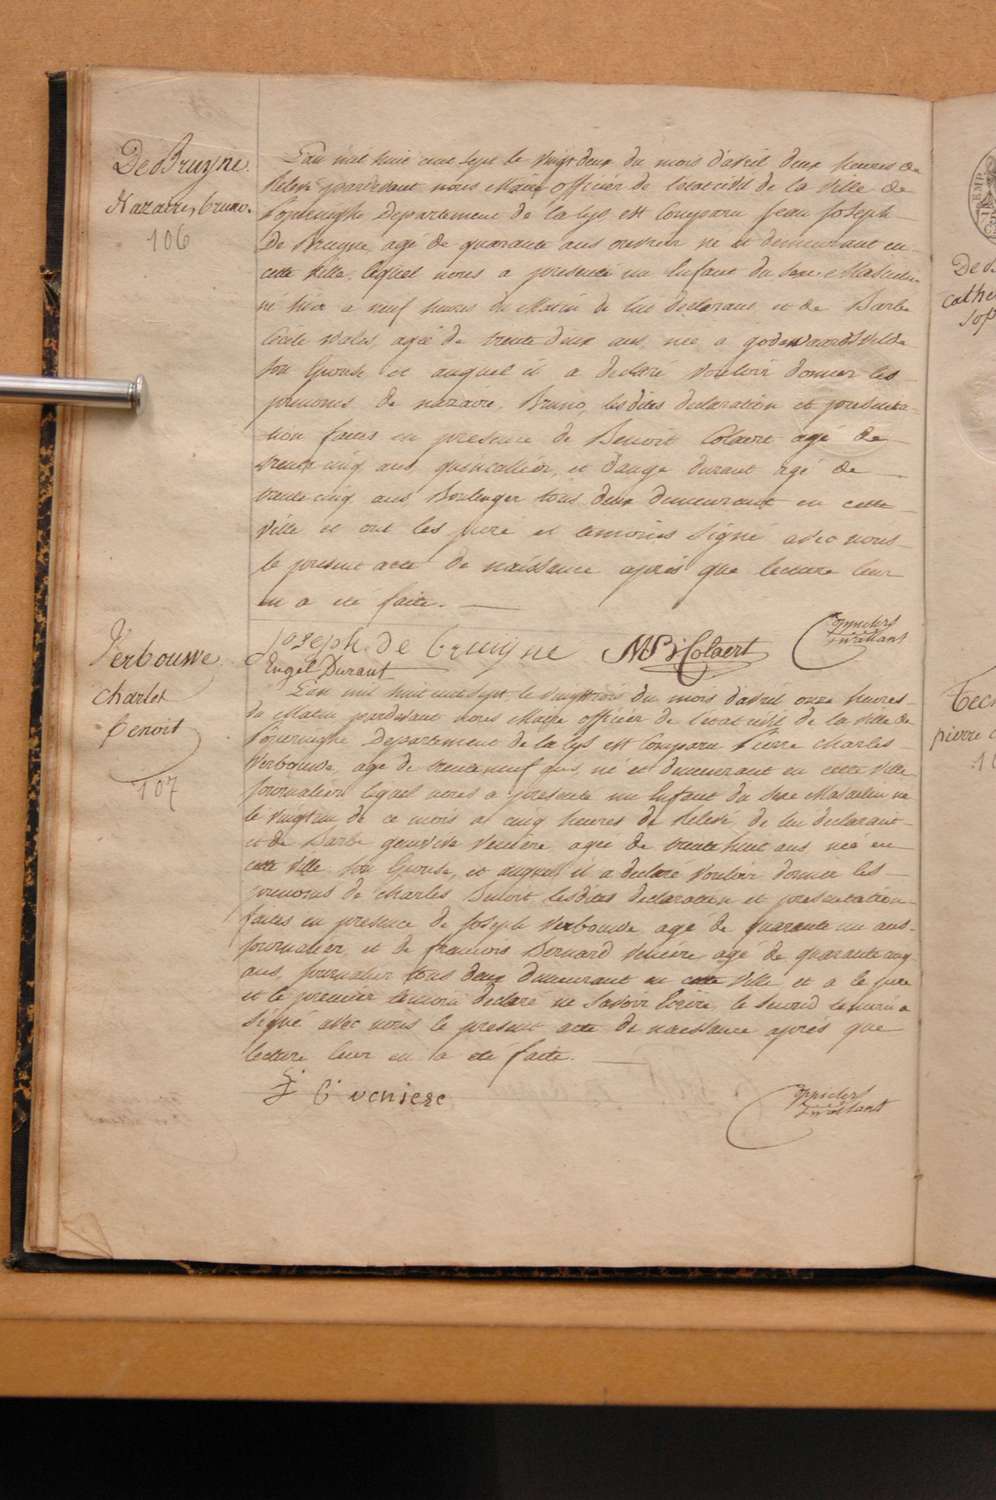 DeBruyne
Nazaire, bruno.
106
L'an mil huit cent sept le vingt deux du mois d'avril deux heures de
Relevé pardevant nous Maire officier de l'état civil de la ville de
Poperinghe Departement de la Lys est Comparu Jean Joseph
De Bruyne, agé de quarante ans ouvrier né et demeurant en
cette Ville, lequel nous a presenté un Enfant du sexe Masculin
né hier a neuf heures du Matin de lui declarant et de Barbe
Cécile Wales, agée de trente deux ans, née a godewaersvelde
son Epouse et auquel il a declaré Vouloir donner les
prenoms de nazaire, Bruno, lesdites declaration et presenta-
tion faites en presence de Benoit Colaert agé de
trente cinq ans, quincallier, et d'ange durant agé de
trente cinq ans Boulanger tous deux demeurant en cette
Ville et ont les pere et temoins Signé avec nous
le present acte de naissance après que lecture leur
en a été faite.
Joseph de bruyne
Colaert
Engel Durant
Verbouwe
Charles
benoit
107
L'an mil huit cent sept, le vingt trois du mois d'avril onze heures
du Matin, pardevant nous Maire officier de l'état civil de la Ville de
Poperinghe Departement de la Lys est Comparu Pierre Charles
Verbouwe, agé de trente neuf ans, né et demeurant en cette Ville
journalier lequel nous a presenté un Enfant du Sexe Masculin né
le vingt un de ce mois a cinq heures de Relevé, de lui declarant
et de Barbe genevieve Veniere, agée de trente huit ans née en
cette Ville son Epouse, et auquel il a declaré Vouloir donner les
prenoms de Charles Benoit, lesdites declaration et presentation
faites en presence de Joseph Verbouwe agé de quarante un ans
journalier et de francois Bernard Veniere agé de quarante cinq
ans, journalier tous deux demeurant en cette Ville, et a le pere
et le premier temoin declaré ne Savoir Ecrire, le Second temoin a
Signé avec nous le present acte de naissance après que
lecture leur en a été faite.
veniere
De B
Cathe
Sop
pierre